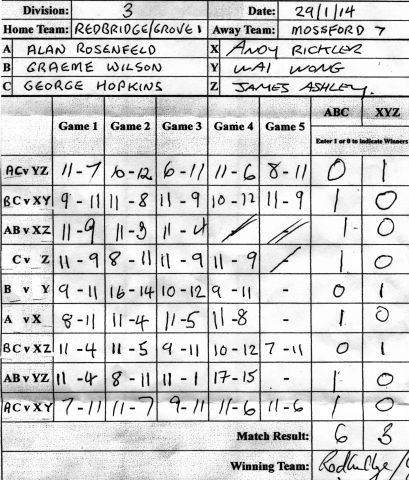 Division: 3 Date: 29/1/14
Home Team: REDBRIDGE/GROVE 1 Away Team: MOSSFORD 7
A ALAN ROSENFELD X ANDY RICHLER
B GRAEME WILSON Y WAI WONG
C GEORGE HOPKINS Z JAMES ASHLEY.
Game 1 Game 2 Game 3 Game 4 Game 5 ABC XYZ
Enter 1 or 0 to indicate Winners
AC v YZ 11-7 10-12 6-11 11-6 8-11 0 1
BC v XY 9-11 11-8 11-9 10-12 11-9 1 0
AB v XZ 11-9 11-3 11-4 1 0
C v Z 11-9 8-11 11-9 11-9 1 0
B v Y 9-11 16-14 10-12 9-11 - 0 1
A v X 8-11 11-4 11-5 11-8 1 0
BC v XZ 11-4 11-5 9-11 10-12 7-11 0 1
AB v YZ 11-4 8-11 11-1 17-15 - 1 0
AC v XY 7-11 11-7 9-11 11-6 11-6 1 0
Match Result: 6 3
Winning Team: Redbridge/